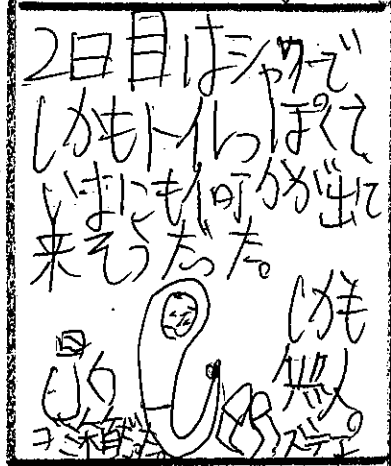 2日目はシャワーで
しかもトイレっぽくて
いまにも何かが出て
来そうだった。
しかも
無人